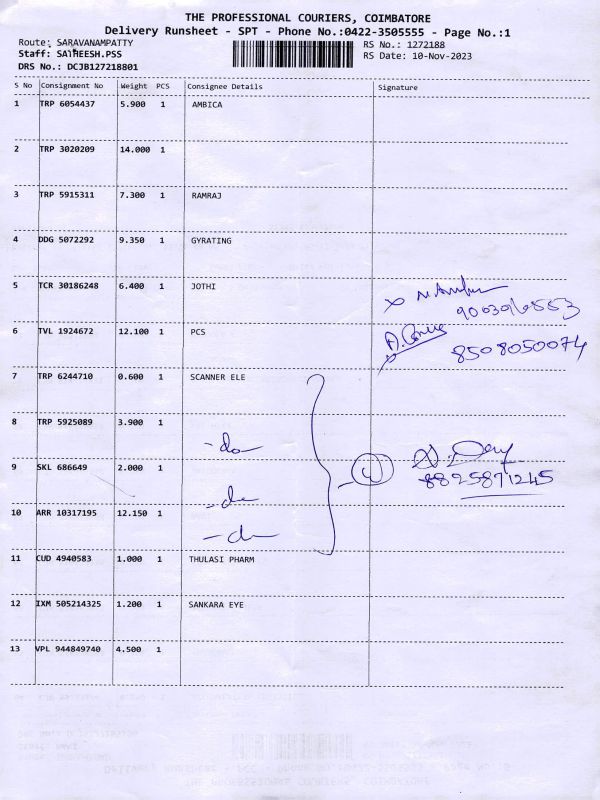 THE PROFESSIONAL COURIERS, COIMBATORE
Delivery Runsheet - SPT - Phone No.:0422-3505555 - Page No.:1
Route: SARAVANAMPATTY
RS No.: 1272188
Staff: SATHEESH.PSS
RS Date: 10-Nov-2023
DRS No.: DCJB127218801
S No Consignment No Weight PCS Consignee Details Signature
1 TRP 6054437 5.900 1 AMBICA
2 TRP 3020209 14.000 1
3 TRP 5915311 7.300 1 RAMRAJ
4 DDG 5072292 9.350 1 GYRATING
5 TCR 30186248 6.400 1 JOTHI
9003096553
6 TVL 1924672 12.100 1 PCS
8508050074
7 TRP 6244710 0.600 1 SCANNER ELE
8 TRP 5925089 3.900 1
-do-
9 SKL 686649 2.000 1
8825871245
-do-
10 ARR 10317195 12.150 1
-do-
11 CUD 4940583 1.000 1 THULASI PHARM
12 IXM 505214325 1.200 1 SANKARA EYE
13 VPL 944849740 4.500 1